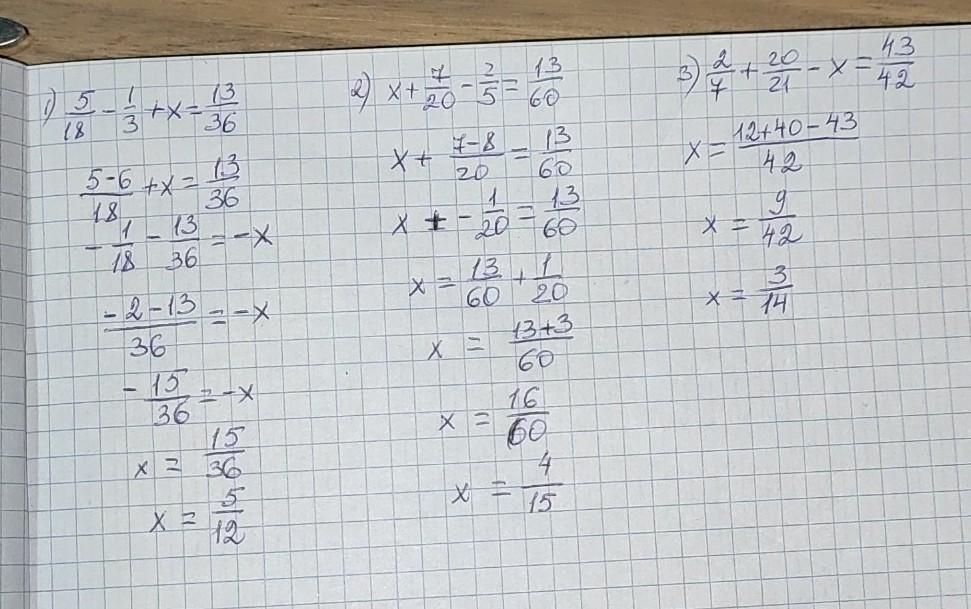 1) 5/18 - 1/3 + x = 13/36
5-6/18 + x = 13/36
- 1/18 - 13/36 = -x
-2-13/36 = -x
- 15/36 = -x
x = 15/36
x = 5/12
2) x + 7/20 - 2/5 = 13/60
x + 7-8/20 = 13/60
x + - 1/20 = 13/60
x = 13/60 + 1/20
x = 13+3/60
x = 16/60
x = 4/15
3) 2/7 + 20/21 - x = 43/42
x = 12+40-43/42
x = 9/42
x = 3/14